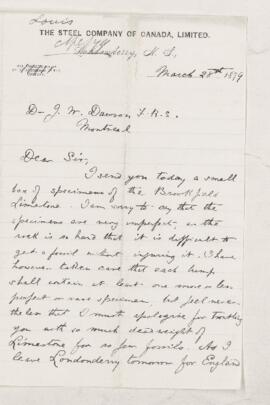 Louis
THE STEEL COMPANY OF CANADA, LIMITED.
Londonderry, N. S.,
March 28th 1879
Dr J. W. Dawson F. R. S.
Montreal
Dear Sir,
I send you today a small
box of specimens of the Brookfield
Limestone. I am sorry to say that the
specimens are very imperfect, as the
rock is so hard that it is difficult to
get a fossil without injuring it. I have
however taken care that each lump
shall contain at least one more or less
perfect or rare specimen, but feel never
the less that I must apologise for troubling
you with so much dead weight of
Limestone for so few fossils. As I
leave Londonderry tomorrow for England